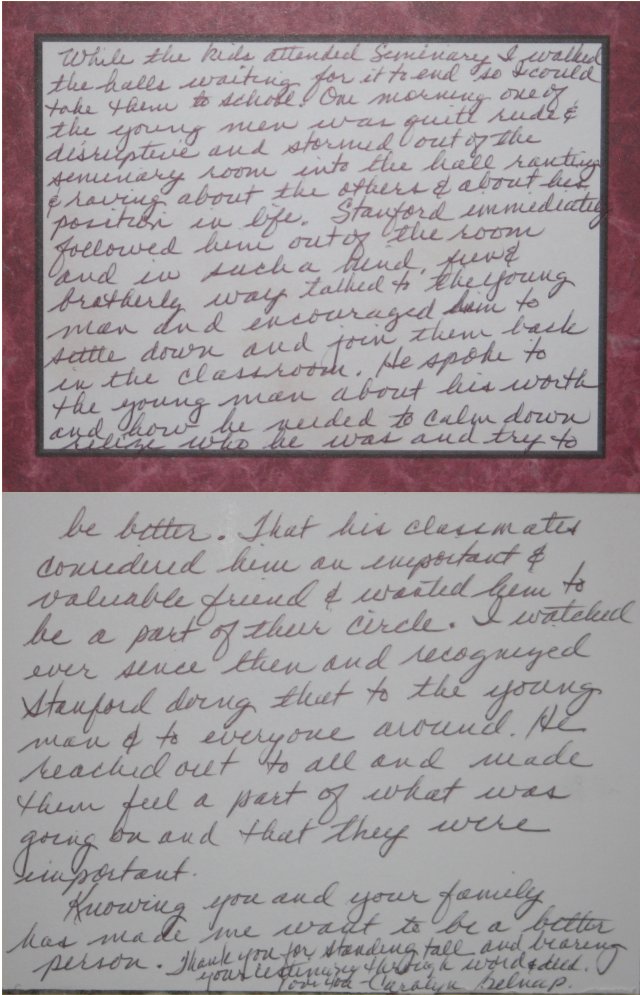 While the kids attended Seminary I walked
the halls waiting for it to end so I could
take them to school. One morning one of
the young men was quite rude &
disruptive and stormed out of the
seminary room into the hall ranting
& raving about the others & about his
position in life. Stanford immediately
followed him out of the room
and in such a kind, fun &
brotherly way talked to the young
man and encouraged him to
settle down and join them back
in the classroom. He spoke to
the young man about his worth
and how he needed to calm down
relize who he was and try to
be better. That his classmates
considered him an important &
valuable friend & wanted him to
be a part of their circle. I watched
ever sence then and recognized
Stanford doing that to the young
man & to everyone around. He
reached out to all and made
them feel a part of what was
going on and that they were
important.
Knowing you and your family
has made me want to be a better
person. Thank you for standing tall and bearing
your testimony through word & deed.
Love You - Carolyn Belnap.